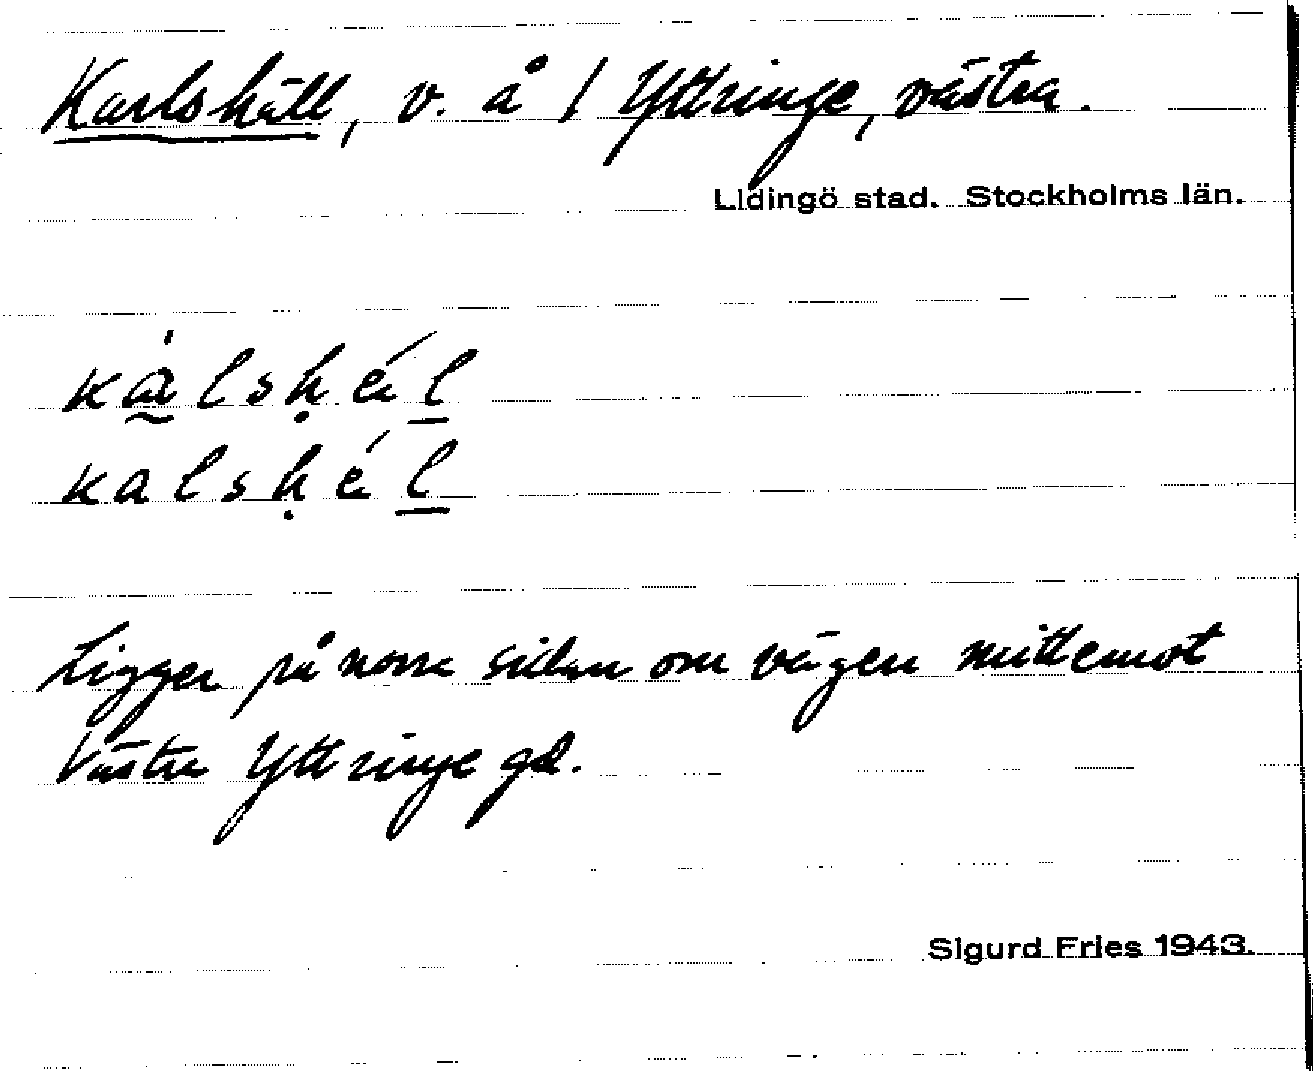 Karlshäll, v. å / Yttringe, västra.
Lidingö stad. Stockholms län.
kàlsḥä́l
kalsḥä́l
Ligger på norra sidan om vägen mittemot
Västra Yttringe gd.
Sigurd Fries 1943.